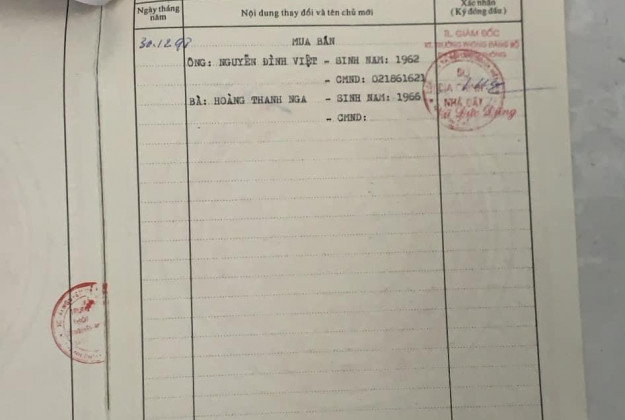 Ngày tháng năm
Nội dung thay đổi và tên chủ mới
Xác nhận (Ký đóng dấu)
30.12.97
MUA BÁN
TL GIÁM ĐỐC
ÔNG: NGUYỄN ĐÌNH VIỆT - SINH NAM: 1962
- CMND: 021861621
BÀ: HOÀNG THANH NGA - SINH NAM: 1966
NHÀ ĐẤT
- CMND: